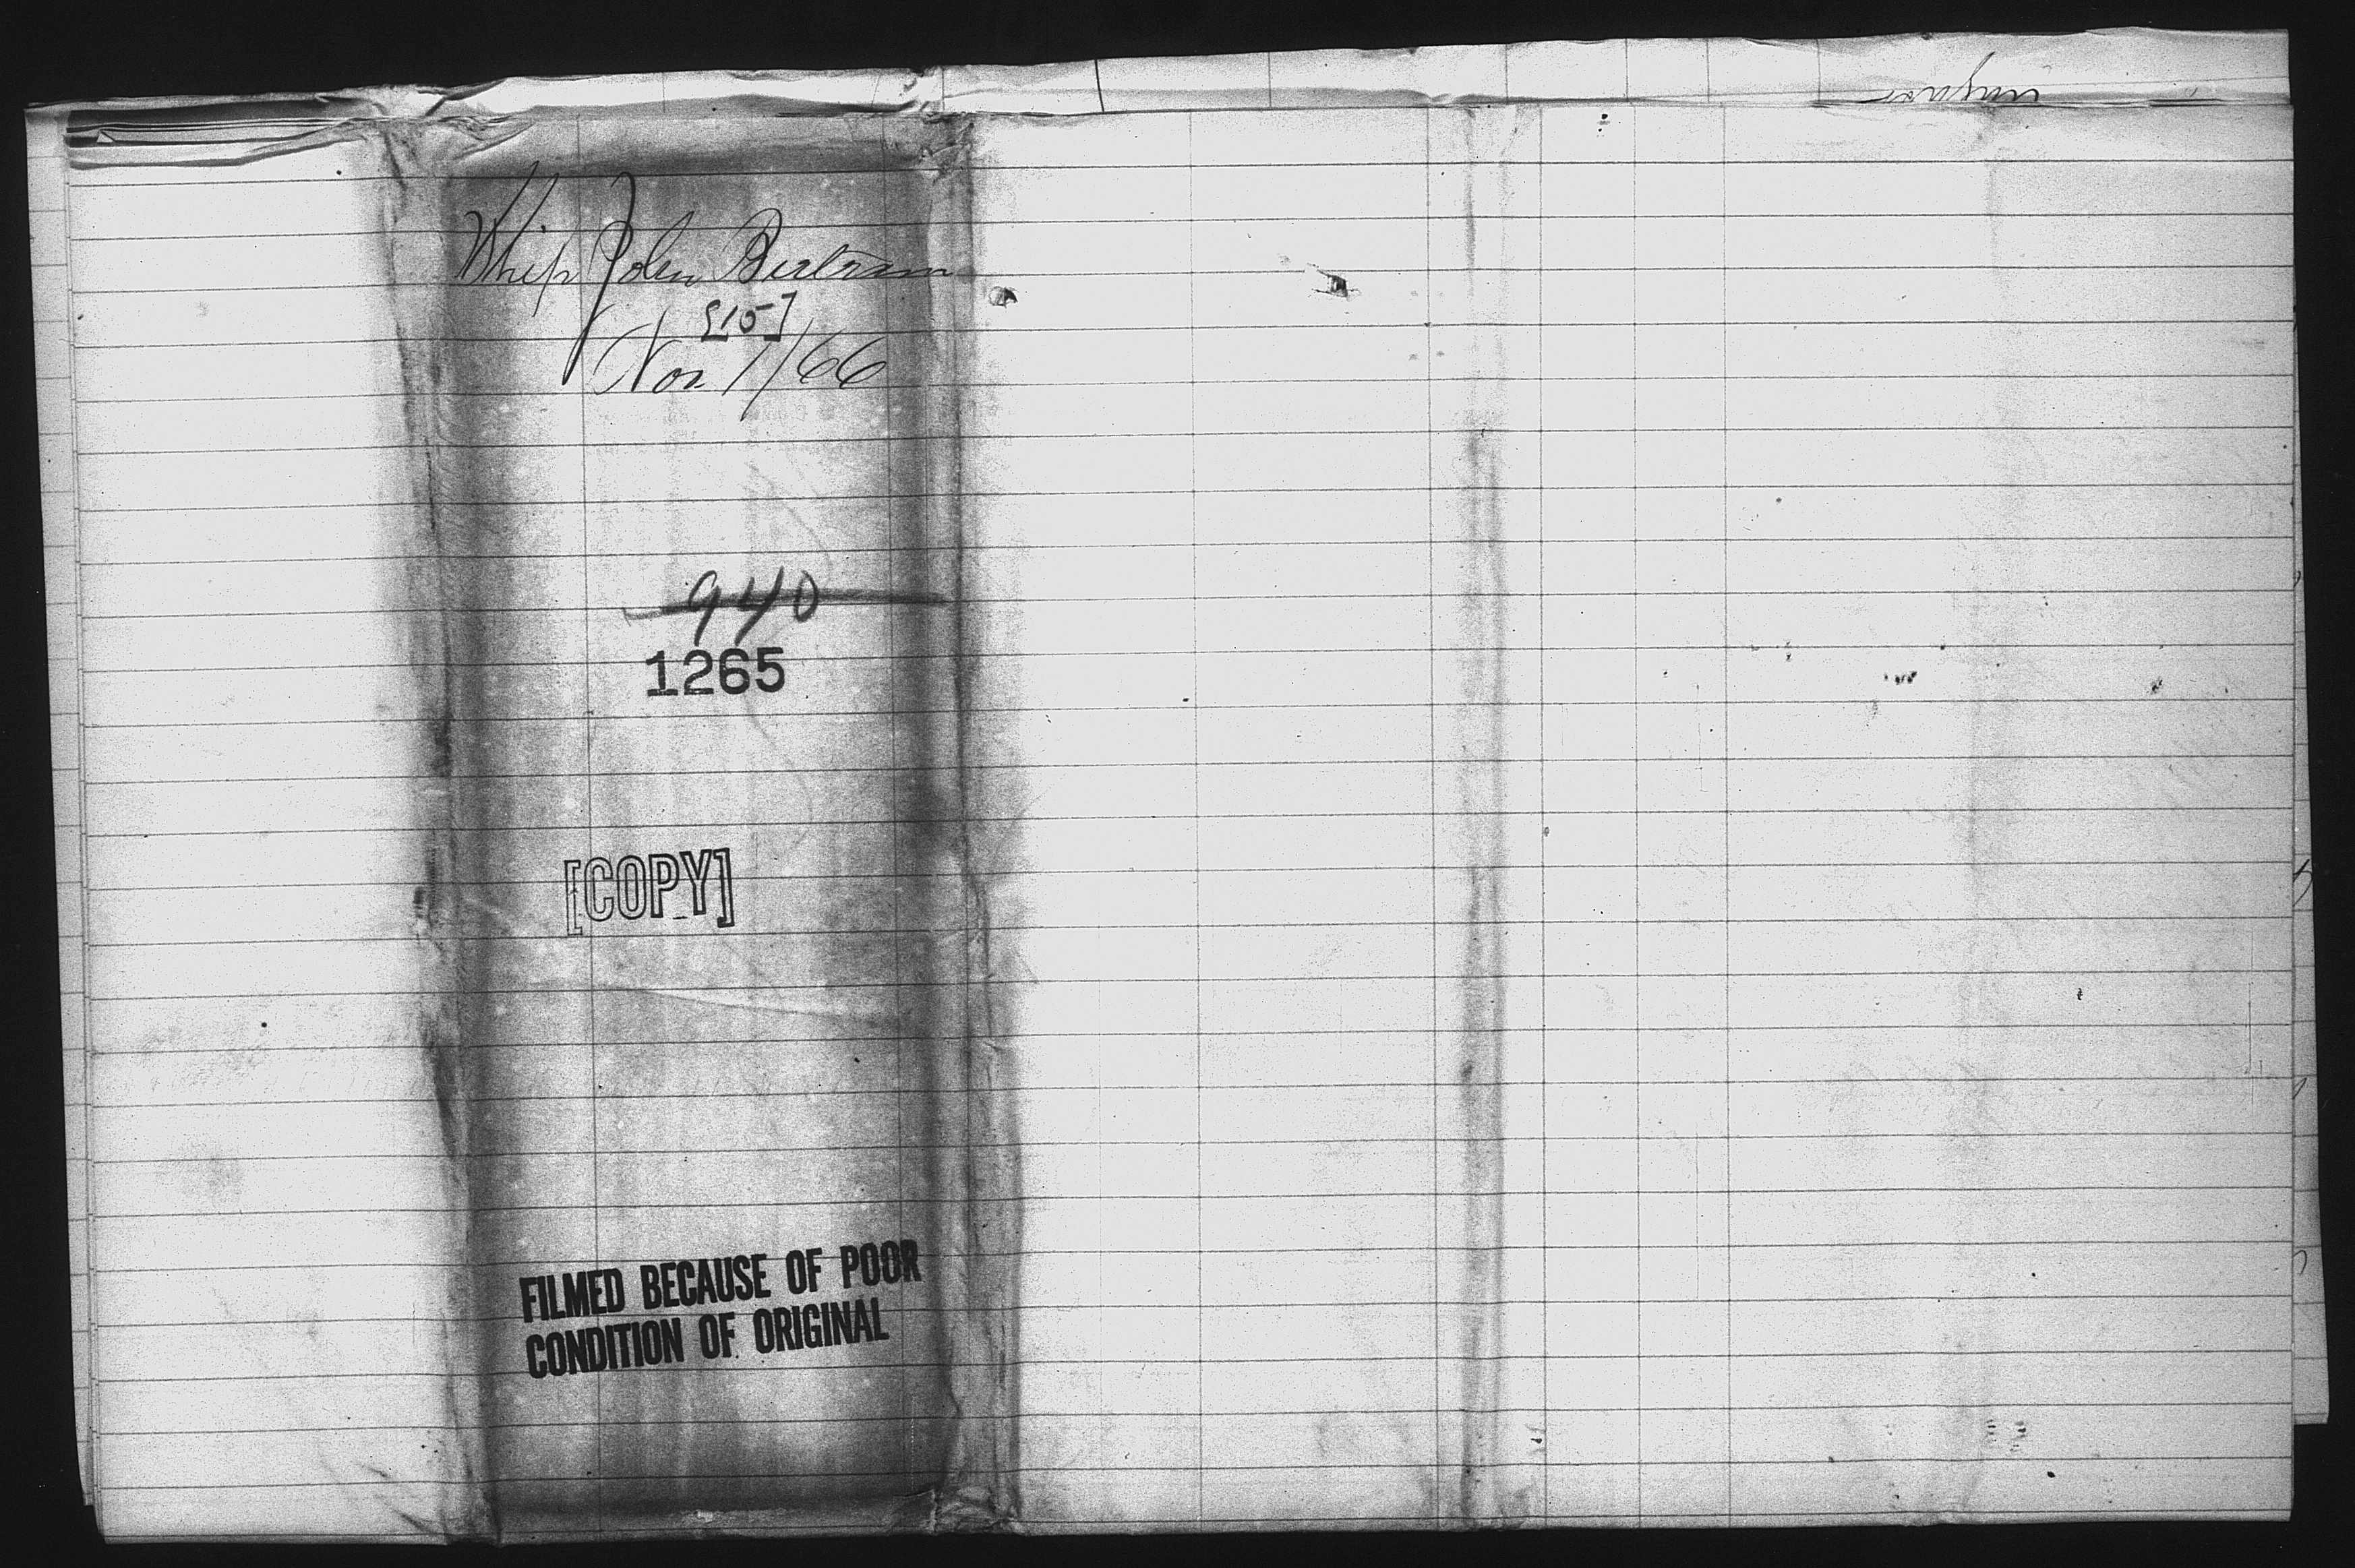 Ship John Bertram
[15]
Nov 1/66
940
1265
[COPY]
FILMED BECAUSE OF POOR
CONDITION OF ORIGINAL